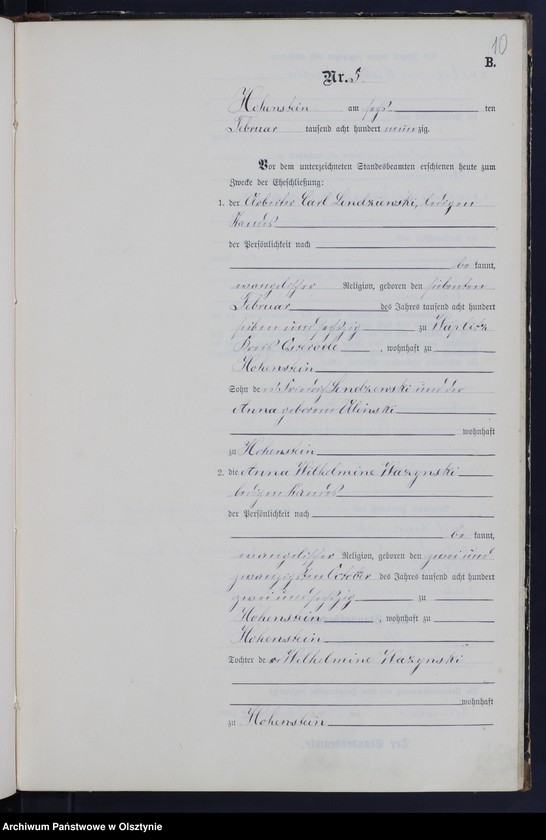 10
B.
Nr. 5
Hohenstein am sechs ten
Februar tausend acht hundert neunzig.
Vor dem unterzeichneten Standesbeamten erschienen heute zum
Zwecke der Eheschließung:
1. der Arbeiter Carl Lendzienski, ledigen
Standes
der Persönlichkeit nach
be kannt,
evangelischer Religion, geboren den siebenten
Februar des Jahres tausend acht hundert
sieben und sechszig zu Waplitz
Kreis Osterode, wohnhaft zu
Hohenstein
Sohn de Lendzewski und der
Anna geborene Olinski
wohnhaft
zu Hohenstein
2. die Anna Wilhelmine Wazynski
ledigen Standes
der Persönlichkeit nach
be kannt,
evangelischer Religion, geboren den zwei und
zwanzigsten October des Jahres tausend acht hundert
zwei und sechszig zu
Hohenstein, wohnhaft zu
Hohenstein
Tochter der Wilhelmine Wazynski
wohnhaft
zu Hohenstein
Archiwum Państwowe w Olsztynie